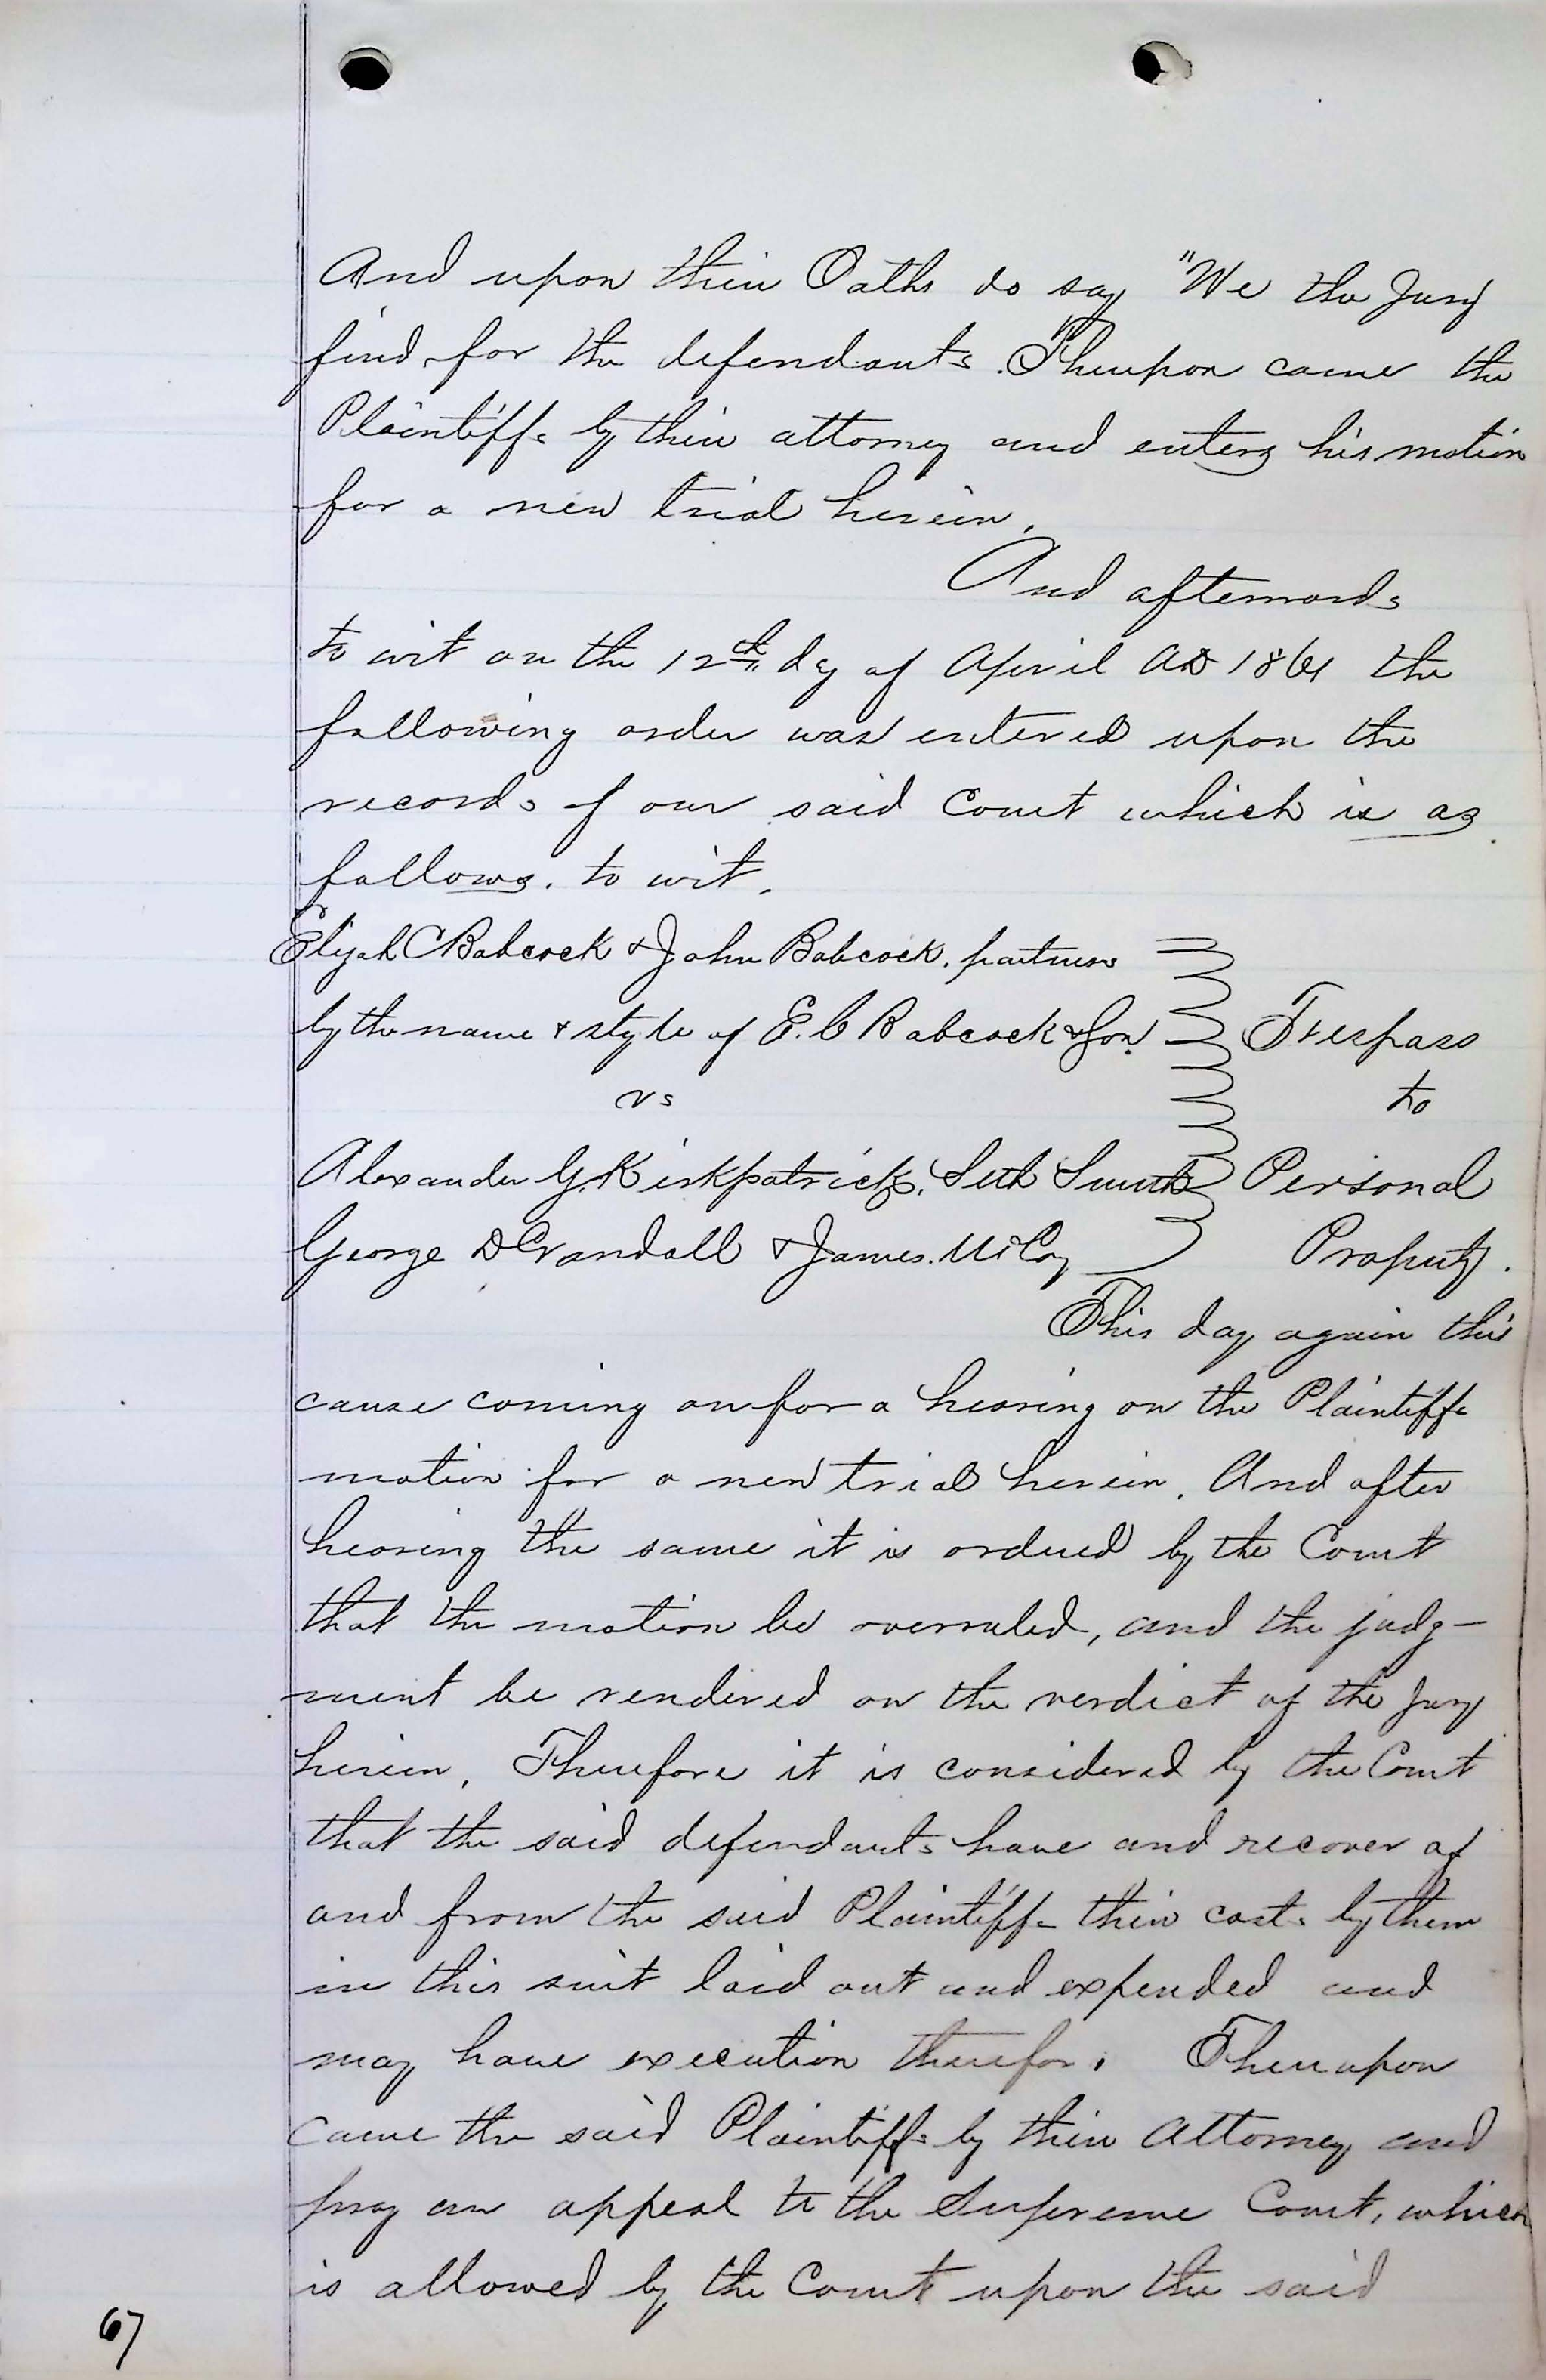 And upon their Oaths do say "We the Jury
find for the defendants". Thereupon came the
Plaintiffs by their attorney and enters his motion
for a new trial herein.
And afterwards
to wit on the 12th day of April AD 1861 the
following order was entered upon the
records of our said Court which is as
follows. to wit.
Elijah C Babcock & John Babcock. partners
by the name & style of E. C Babcock & Son. Trespass
vs to
Alexander G. Kirkpatrick, Seth Smith Personal
George D Crandall & James McCoy Property.
This day again this
cause coming on for a hearing on the Plaintiffs
motion for a new trial herein. And after
hearing the same it is ordered by the Court
that the motion be overruled, and the judg-
ment be rendered on the verdict of the Jury
herein. Therefore it is considered by the Court
that the said defendants have and recover of
and from the said Plaintiffs their costs by them
in this suit laid out and expended and
may have execution therefor. Thereupon
came the said Plaintiffs by their Attorney and
pray an appeal to the Supreme Court, which
is allowed by the Court upon the said
67